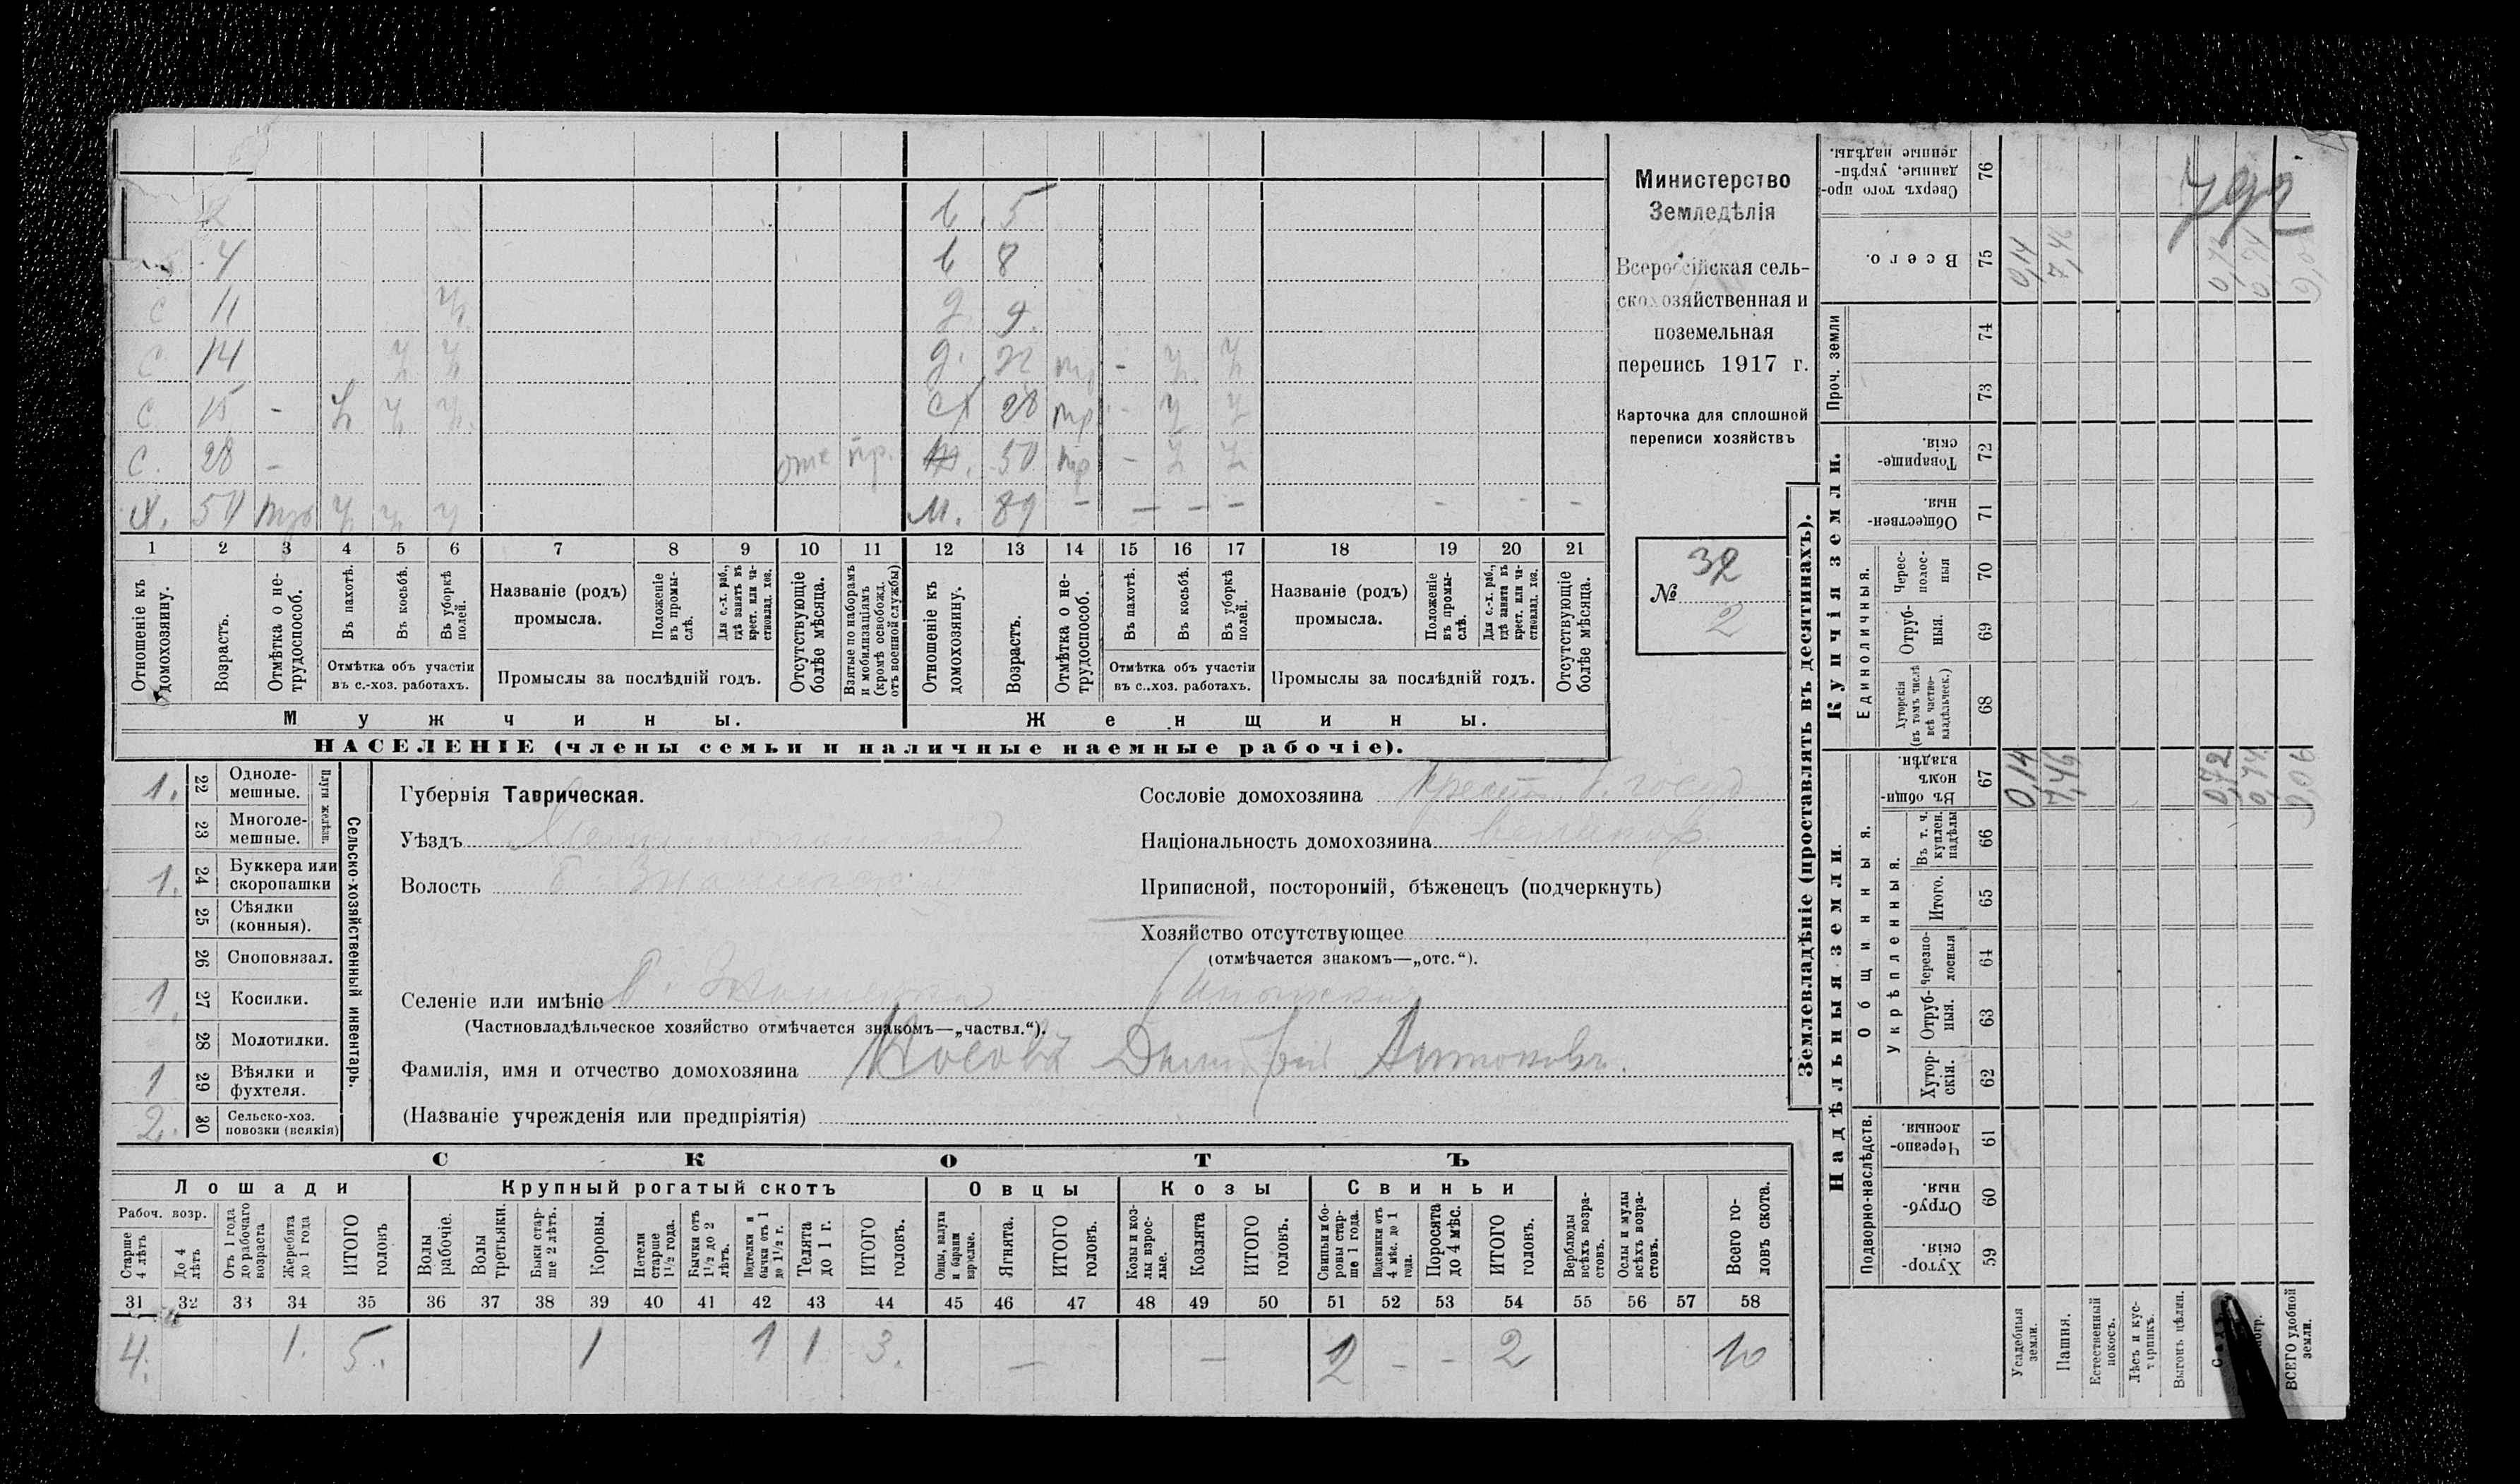 Министерство
Земледѣлія
Всероссійская сель-
скохозяйственная и
поземельная
перепись 1917 г.
Карточка для сплошной
переписи хозяйствъ
№ 32
2
792
2 в 5
4 в 8
с 11 ч д 9
с 14 ч ч д. 22 тр - ч ч
с 15 - ч ч ч 28 тр - ч ч
с. 28 - отс пр. 50 тр - ч ч
х. 50 ч ч ч м. 89 - - - - - - -
1 2 3 4 5 6 7 8 9 10 11 12 13 14 15 16 17 18 19 20 21
Отношеніе къ домохозяину.
Возрастъ.
Отмѣтка о не-трудоспособ.
Въ пахотѣ.
Въ косьбѣ.
Въ уборкѣ полей.
Отмѣтка объ участіи
въ с.-хоз. работахъ.
Названіе (родъ)
промысла.
Положеніе въ промы-слѣ.
Для с.-х. раб., гдѣ занятъ въ крест. или ча-стновлад. хоз.
Промыслы за послѣдній годъ.
Отсутствующіе болѣе мѣсяца.
Взятые по наборамъ и мобилизаціямъ (кромѣ освобожд. отъ военной службы)
Отношеніе къ домохозяину.
Возрастъ.
Отмѣтка о не-трудоспособ.
Въ пахотѣ.
Въ косьбѣ.
Въ уборкѣ полей.
Отмѣтка объ участіи
въ с..хоз. работахъ.
Названіе (родъ)
промысла.
Положеніе въ промы-слѣ.
Для с.-х. раб., гдѣ занята въ крест. или ча-стновлад. хоз.
Промыслы за послѣдній годъ.
Отсутствующіе болѣе мѣсяца.
Мужчины. Женщины.
НАСЕЛЕНІЕ (члены семьи и наличные наемные рабочіе).
1. 22 Одноле-мешные.
23 Многоле-мешные.
Плуги желѣзн.
1. 24 Буккера или скоропашки
25 Сѣялки (конныя).
26 Сноповязал.
1. 27 Косилки.
28 Молотилки.
1 29 Вѣялки и фухтеля.
2. 30 Сельско-хоз. повозки (всякія)
Сельско-хозяйственный инвентарь.
Губернія Таврическая.
Уѣздъ
Волость Б Знаменская
Селеніе или имѣніе Б. Знаменка
(Частновладѣльческое хозяйство отмѣчается знакомъ—„частвл.“).
Фамилія, имя и отчество домохозяина Носовъ Дмитрій Антоновъ.
(Названіе учрежденія или предпріятія)
Сословіе домохозяина Крест. б. госуд
Національность домохозяина великор.
Приписной, посторонній, бѣженецъ (подчеркнуть)
Хозяйство отсутствующее
(отмѣчается знакомъ—„отс.“).
СКОТЪ
Лошади Крупный рогатый скотъ Овцы Козы Свиньи
Рабоч. возр.
Старше 4 лѣтъ
До 4 лѣтъ
Отъ 1 года до рабочаго возраста
Жеребята до 1 года
ИТОГО головъ
Волы рабочіе.
Волы третьяки.
Быки стар-ше 2 лѣтъ.
Коровы.
Нетели старше 1½ года.
Бычки отъ 1½ до 2 лѣтъ.
Подтелки и бычки отъ 1 до 1½ г.
Телята до 1 г.
ИТОГО головъ.
Овцы, валухи и бараны взрослые.
Ягнята.
ИТОГО головъ.
Козы и коз-лы взрос-лые.
Козлята
ИТОГО головъ.
Свиньи и бо-ровы стар-ше 1 года.
Подсвинки отъ 4 мѣс. до 1 года.
Поросята до 4 мѣс.
ИТОГО головъ.
Верблюды всѣхъ возра-стовъ.
Ослы и мулы всѣхъ возра-стовъ.
Всего го-ловъ скота.
31 32 33 34 35 36 37 38 39 40 41 42 43 44 45 46 47 48 49 50 51 52 53 54 55 56 57 58
4. 1. 5. 1 1 1 3. — — 2 - - 2 10
Землевладѣніе (проставлять въ десятинахъ).
Надѣльныя земли. Купчія земли. Проч. земли
Подворно-наслѣдств.
Общинныя.
Укрѣпленныя.
Единоличныя.
Хутор-скія. 59
Отруб-ныя. 60
Черезпо-лосныя. 61
Хутор-скія. 62
Отруб-ныя. 63
Черезпо-лосныя 64
Итого. 65
Въ т. ч. куплен. надѣлы 66
Въ общи-номъ владѣн. 67
Хуторскія (въ томъ числѣ всѣ частно-владѣльческ.) 68
Отруб-ныя. 69
Черес-полос-ныя 70
Обществен-ныя. 71
Товарище-скія. 72
73
74
Всего. 75
Сверхъ того про-данные, укрѣп-ленные надѣлы. 76
Усадебныя земли. 0,14 0,14
Пашня. 7,46 7,46
Естественный покосъ.
Лѣсъ и кус-тарникъ.
Выгонъ цѣлин.
0,72 0,72
0,74 0,74
ВСЕГО удобной земли. 9,06 9,06